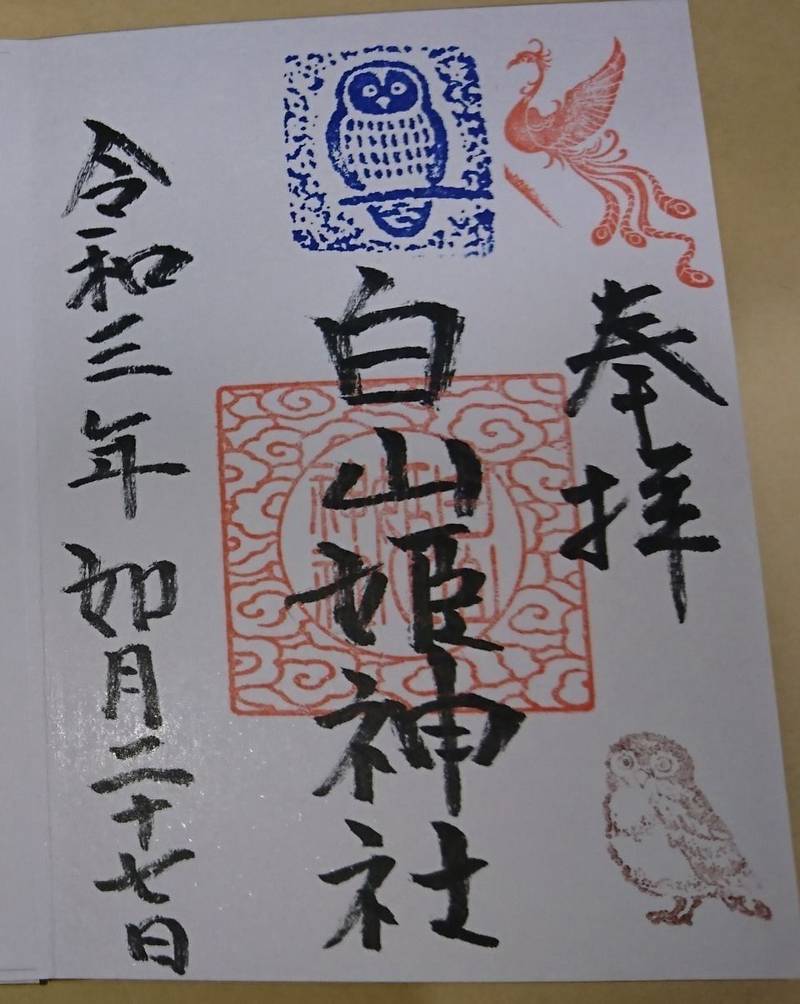 奉拝
白山姫神社
令和三年如月二十七日